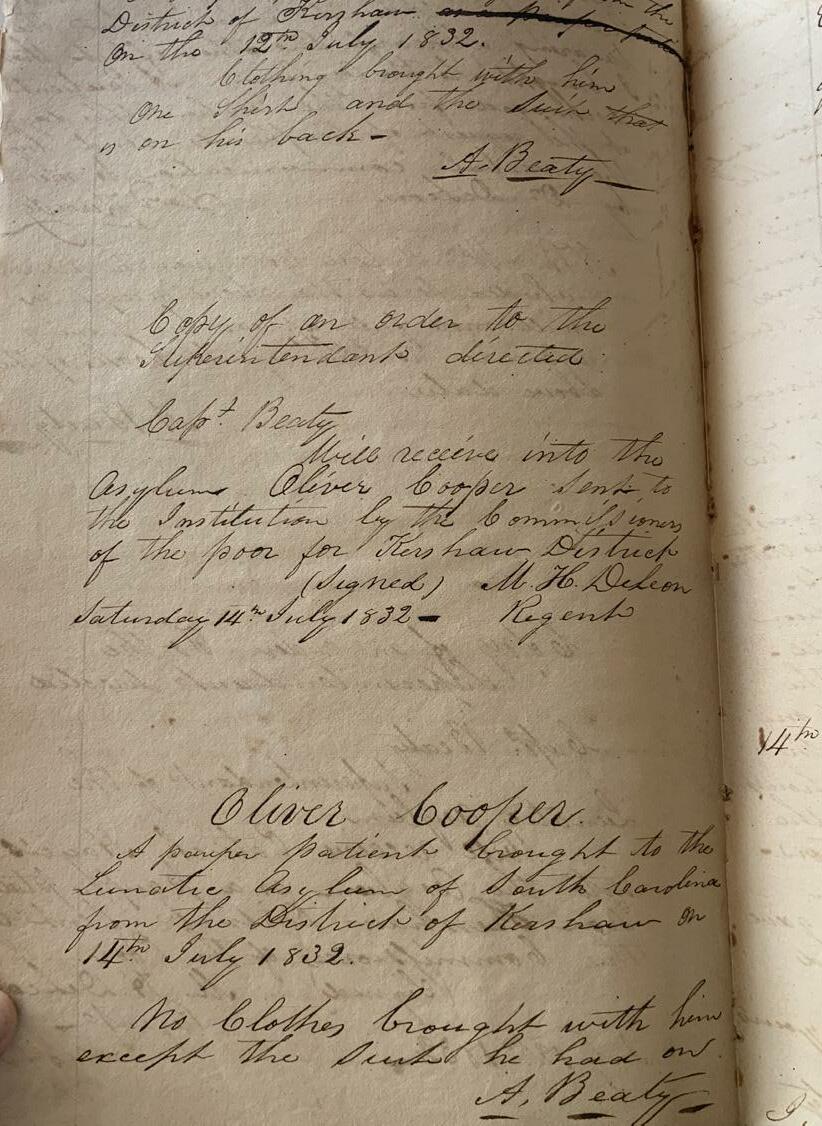 from the
District of Kershaw
On the 12th July 1832.
Clothing brought with him
One Shirt and the Suit that
is on his back -
A. Beaty
Copy of an order to the
Superintendant directed
Capt. Beaty
Will receive into the
Asylum Oliver Cooper sent to
the Institution by the Commissioners
of the poor for Kershaw District
(Signed) M. H. DeLeon
Saturday 14th July 1832 - Regent
14th
Oliver Cooper.
A pauper patient brought to the
Lunatic Asylum of South Carolina
from the District of Kershaw on
14th July 1832.
No Clothes brought with him
except the Suit he had on
A. Beaty